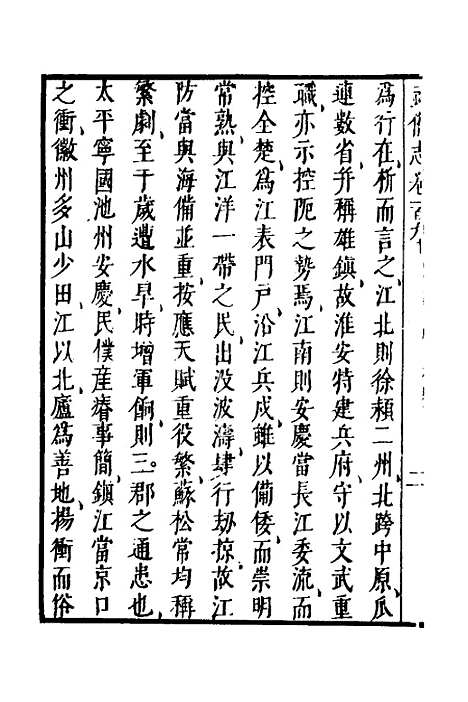 武備志卷一百九十
為行在析而言之江北則徐潁二州北跨中原瓜
連數省并稱雄鎮故淮安特建兵府守以文武重
職亦示控阨之勢焉江南則安慶當長江委流而
控全楚為江表門戶沿江兵戍雖以備倭而崇明
常熟與江洋一帶之民出沒波濤肆行刼掠故江
防當與海備並重按應天賦重役繁蘇松常均稱
繁劇至于歲遭水旱時增軍餉則三郡之通患也
太平寧國池州安慶民僕產瘠事簡鎮江當京口
之衝徽州多山少田江以北廬為善地揚衝而俗